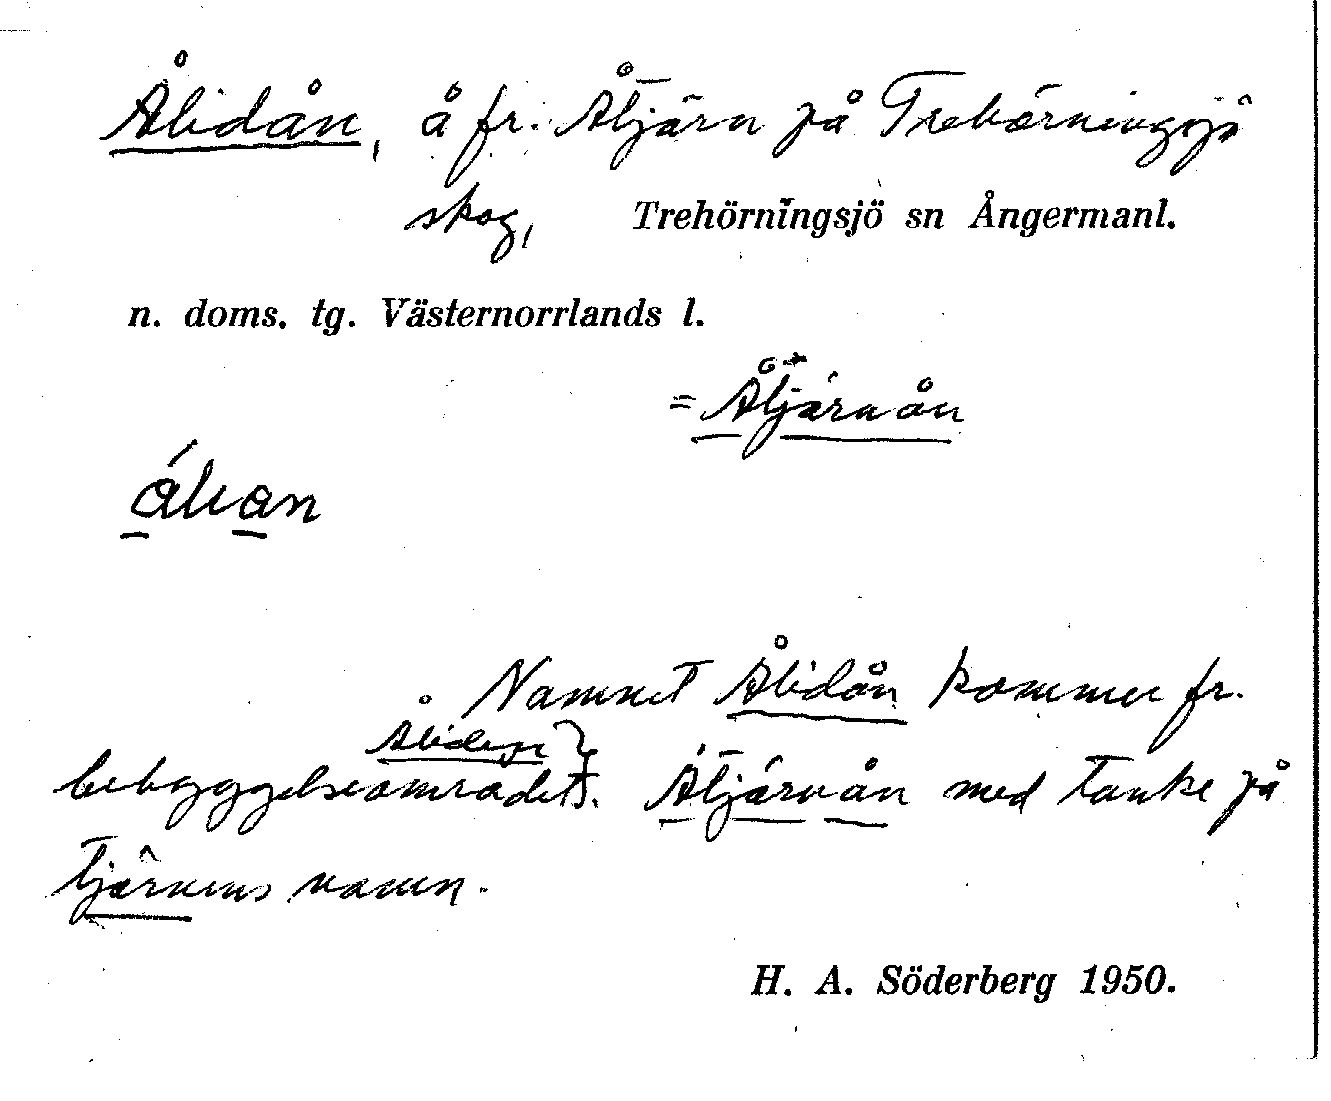 Ålidån, å fr. Åtjärn på Trehörningsjö
skog, Trehörningsjö sn Ångermanl.
n. doms. tg. Västernorrlands l.
= Åtjärnån
Namnet Ålidån kommer fr.
Åliden
bebyggelseområdet. Åtjärnån med tanke på
tjärnens namn.
H. A. Söderberg 1950.